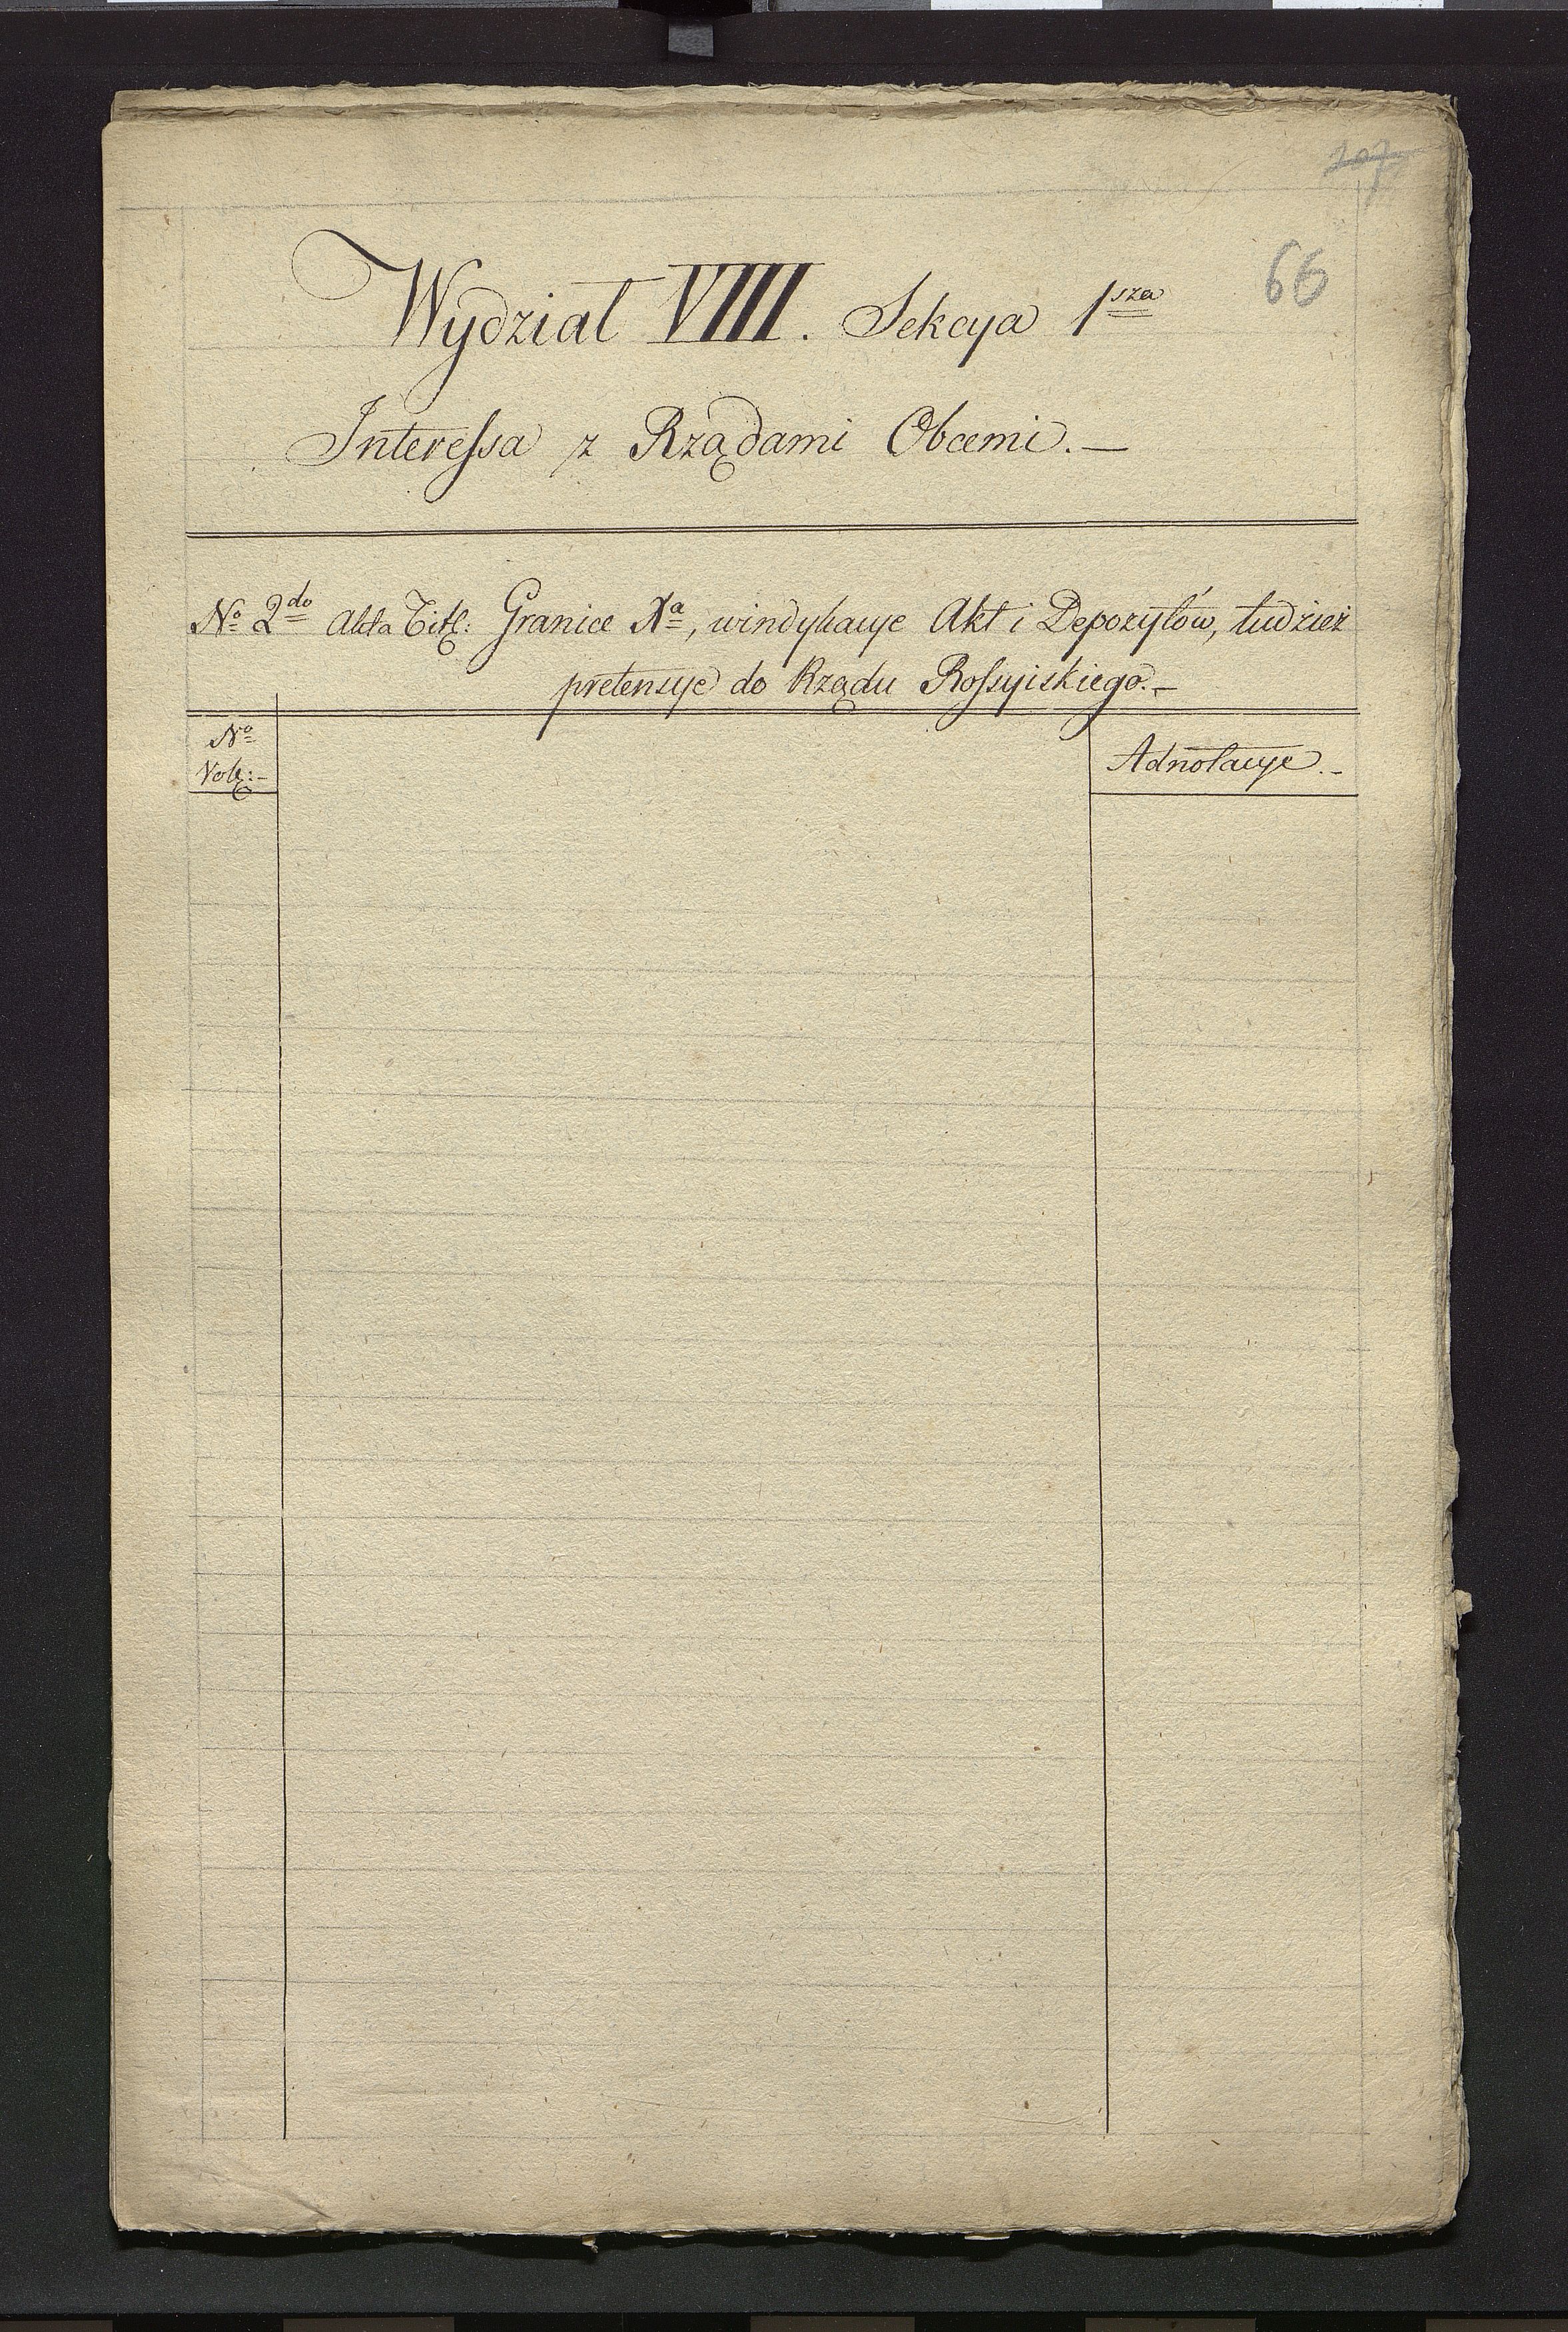 107
66
Wydział VIIII. Sekcya 1sza
Interessa z Rządami Obcemi. —
No 2do Akta Titl: Granice Xa, windykacye Akt i Depozytów, tudzież
pretensye do Rządu Rossyiskiego. —
No
Vol: -
Adnotacye. -